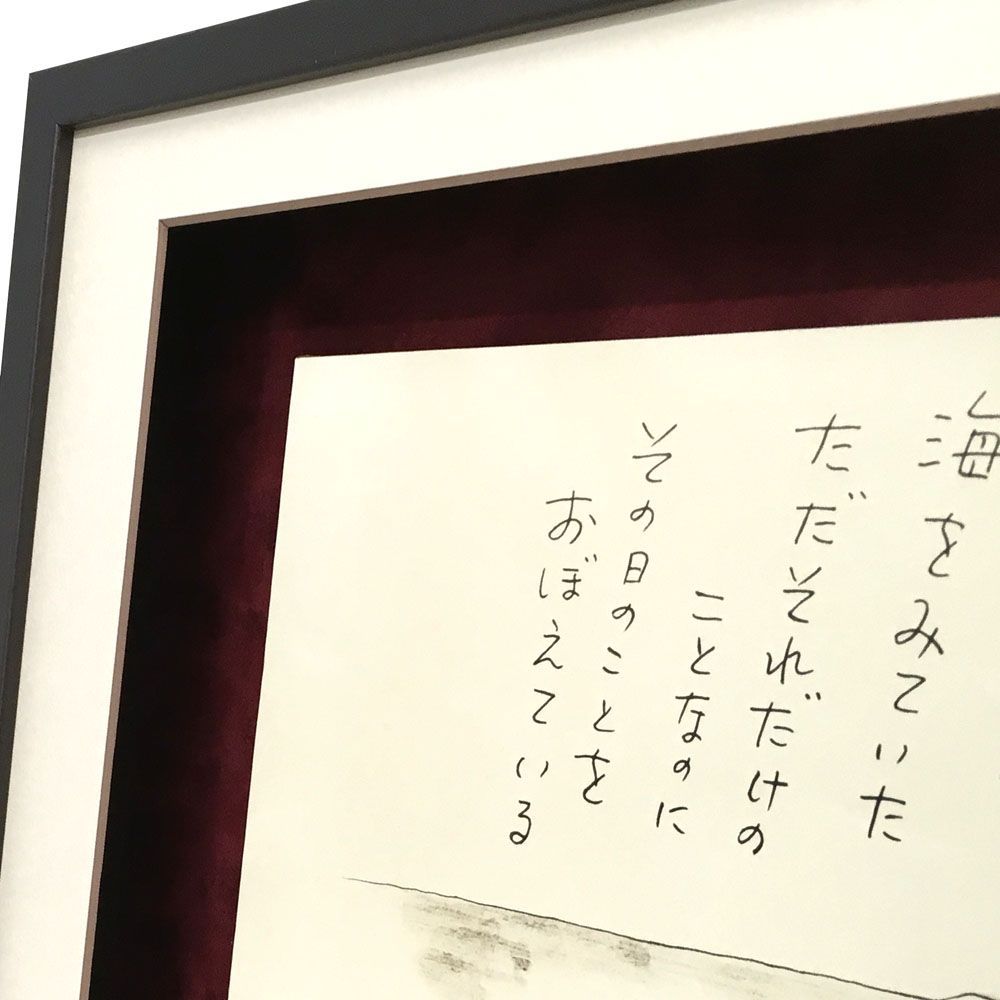 海をみていた
ただそれだけの
ことなのに
その日のことを
おぼえている